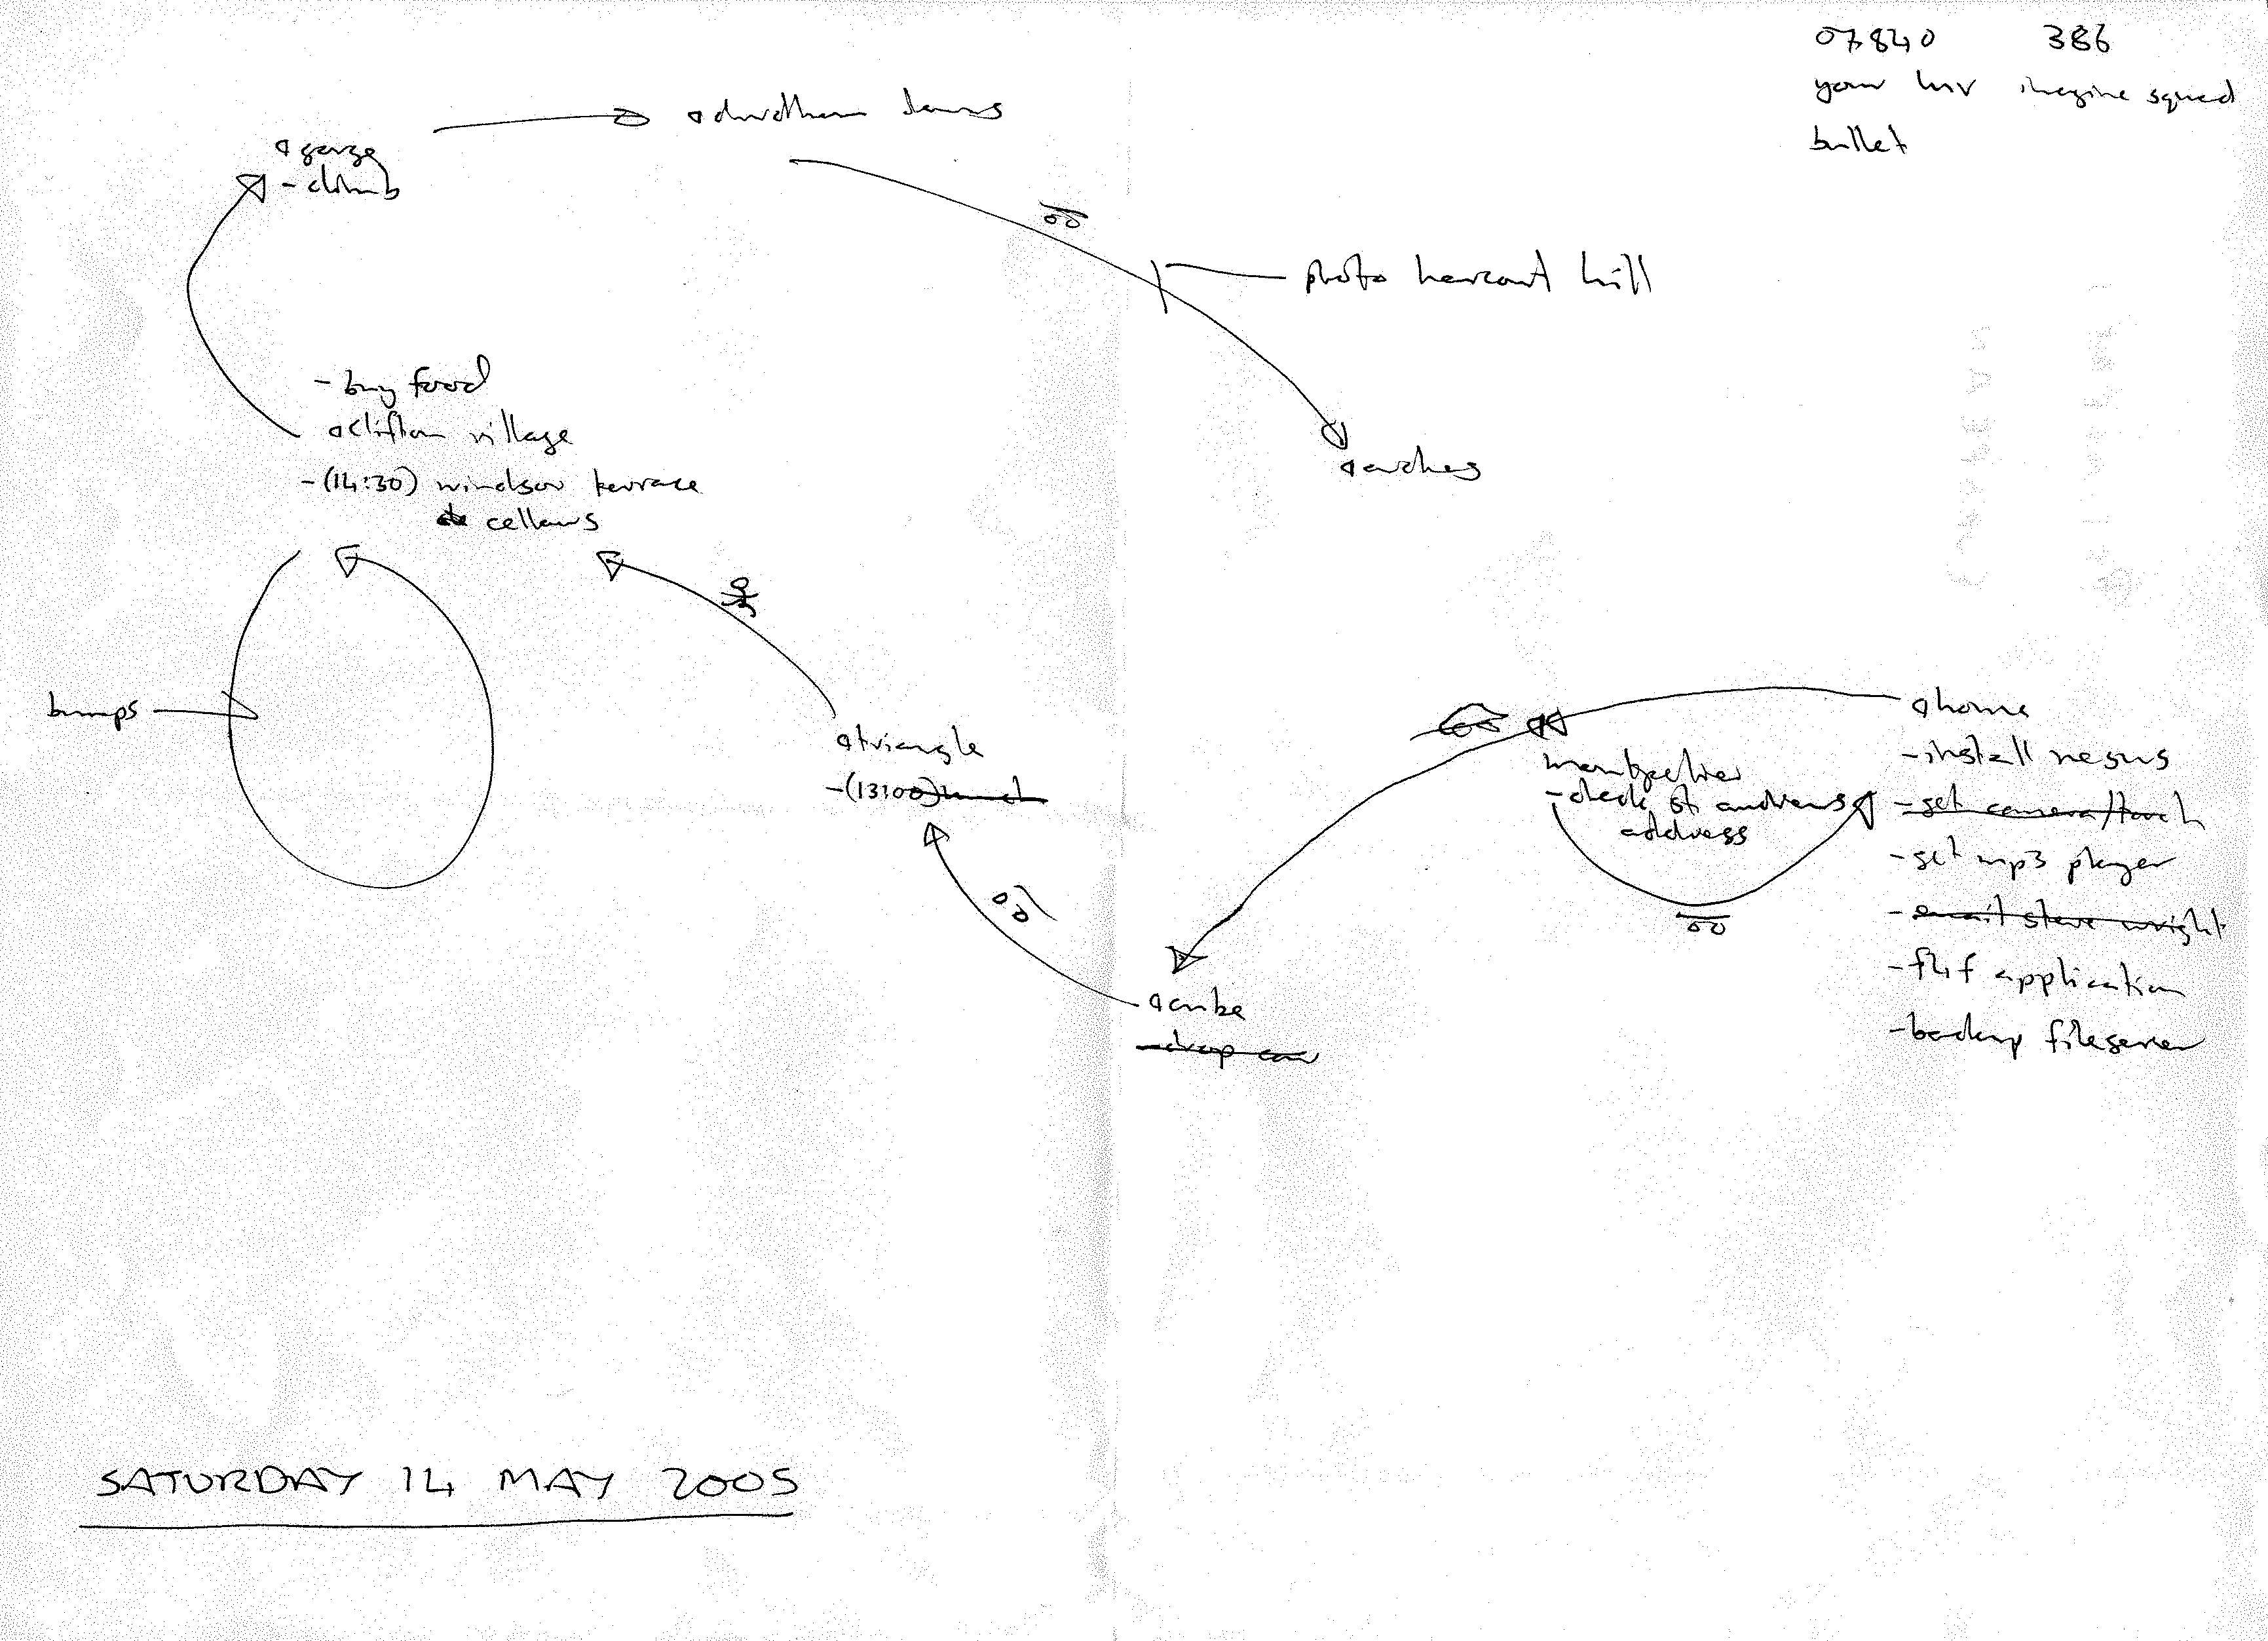 07840 386
your luv imagine squad
bullet
durdham downs
gorge
- climb
photo harcourt hill
- buy food
clifton village
- (14:30) windsor terrace
cellars
arches
bumps
triangle
- (13:00) lunch
home
- install nessus
- get camera/torch
- get mp3 player
- email steve wright
- f4f application
- backup fileserver
montpelier
- check st andrews
address
cube
- drop car
SATURDAY 14 MAY 2005